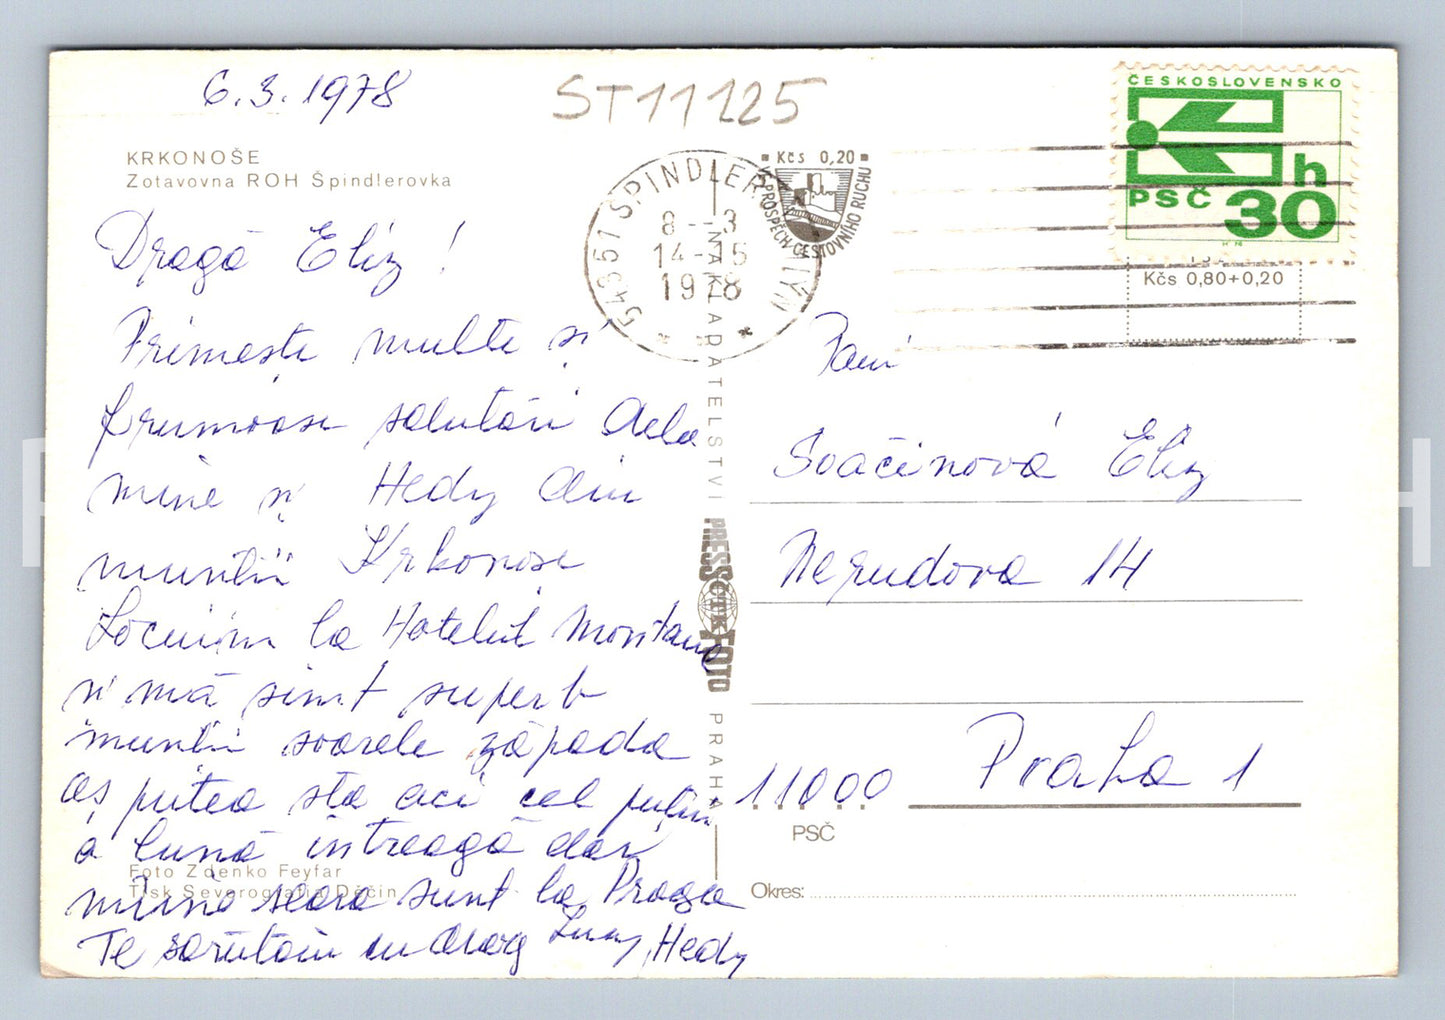 6.3.1978
ST11125
KRKONOŠE
Zotavovna ROH Špindlerovka
Dragă Eliz!
Primeste multe și
frumoase salutări dela
mine și Hedy din
munții Krkonose
Locuim la Hotelul Montana
și mă simt superb
munții soarele zăpada
aș putea sta aci cel puțin
o lună întreagă dar
mîine seara sunt la Praga
Te sărutăm cu drag Lucy, Hedy
Foto Zdenko Feyfar
Tisk Severografia Děčín
NAKLADATELSTVÍ
PRESSFOTO
ČTK
PRAHA
54351 ŠPINDLERŮV MLÝN
8.-3
14-15
1978
Kčs 0,20
VE PROSPĚCH CESTOVNÍHO RUCHU
ČESKOSLOVENSKO
PSČ
30 h
Kčs 0,80+0,20
Paní
Svačinová Eliz
Nerudova 14
11000 Praha 1
PSČ
Okres: